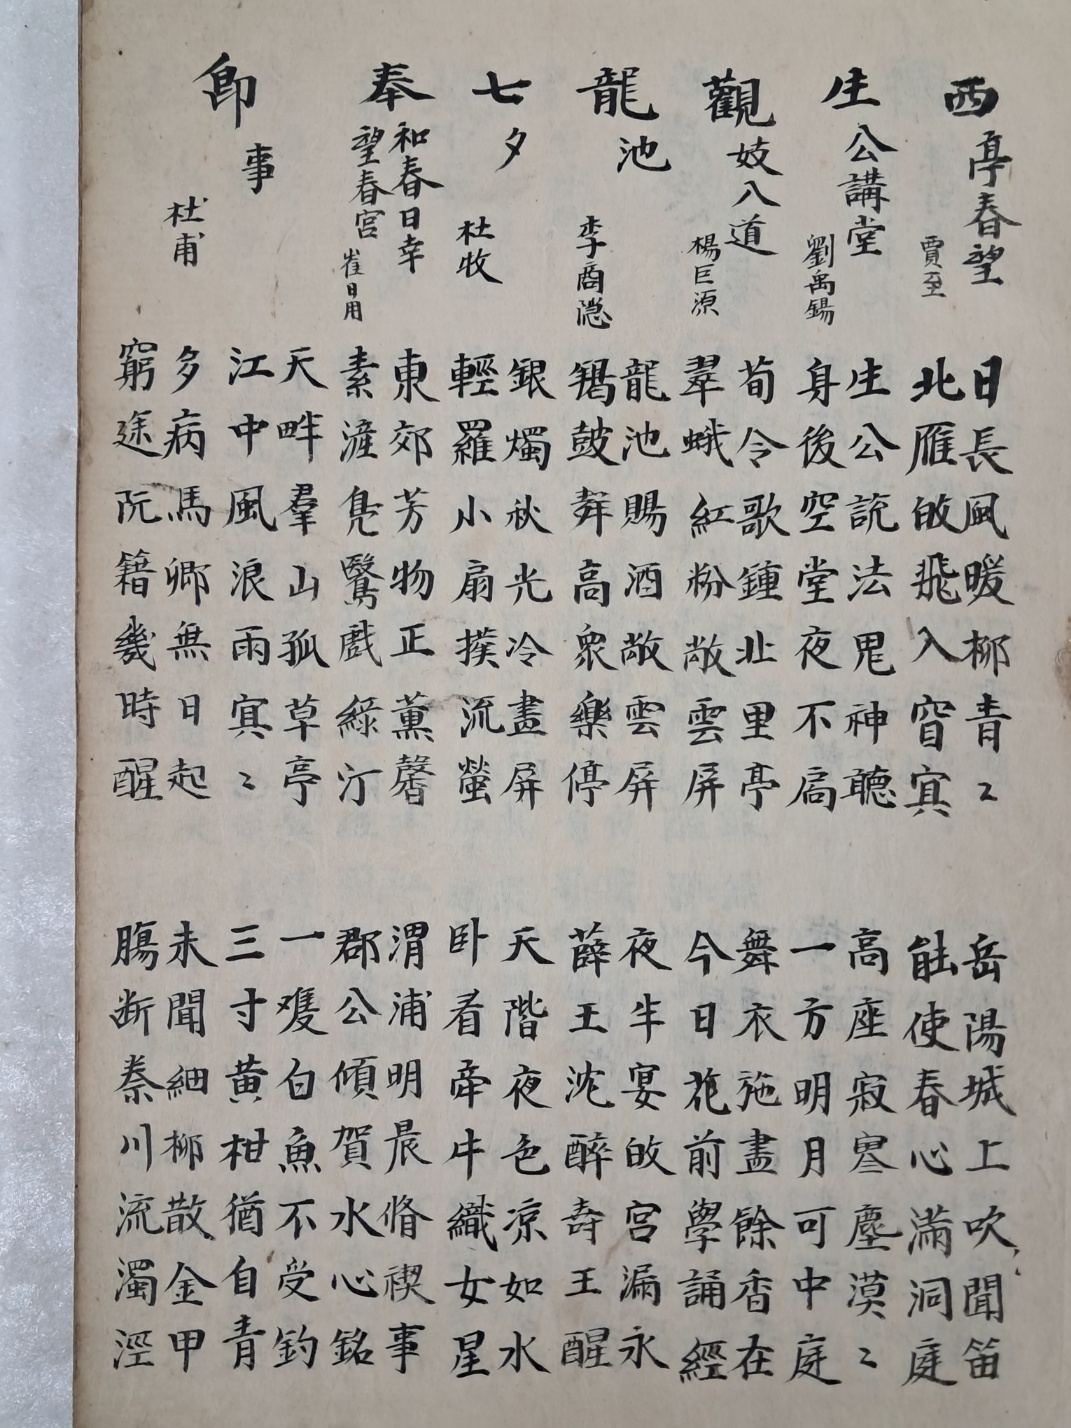 西亭春望 賈至
日長風暖柳青〻
北雁皈飛入窅㝠
岳陽城上吹聞笛
能使春心滿洞庭
生公講堂 劉禹錫
生公説法鬼神聽
身後空堂夜不扃
高座寂寥塵漠〻
一方明月可中庭
觀妓入道 楊巨源
荀令歌鍾北里亭
翠蛾紅粉敞雲屏
舞衣施盡餘香在
今日花前學誦經
龍池 李商隠
龍池賜酒敞雲屏
羯鼓聲高衆樂停
夜半宴皈宮漏永
薛王沈醉壽王醒
七夕 杜牧
銀燭秋光冷畫屏
輕羅小扇撲流螢
天階夜色凉如水
卧看牽牛織女星
奉和春日幸望春宮 崔日用
東郊芳物正薫馨
素滻鳬驚戲綠汀
渭浦明晨脩禊事
郡公傾賀水心銘
即事 杜甫
天畔羣山孤草亭
江中風浪雨㝠〻
一雙白魚不受釣
三寸黃柑猶自青
多病馬卿無日起
窮途阮籍幾時醒
未聞細柳散金甲
腸断秦川流濁涇